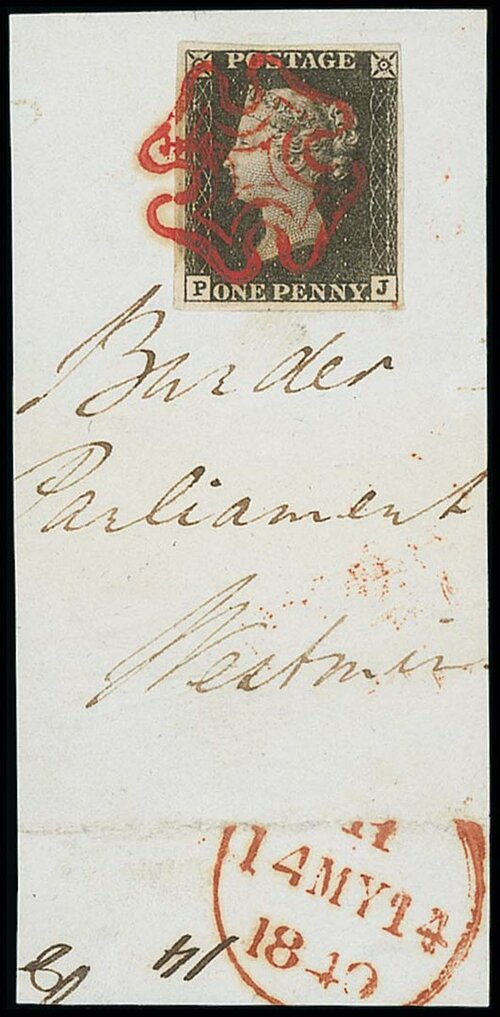 POSTAGE
P ONE PENNY. J
Burder
Parliament
Westmin
H
14MY14
1840
14